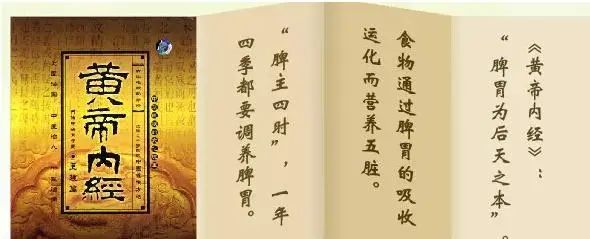 《黄帝内经》：
“脾胃为后天之本”。
食物通过脾胃的吸收
运化而营养五脏。
“脾主四时”，一年
四季都要调养脾胃。
黄帝内經